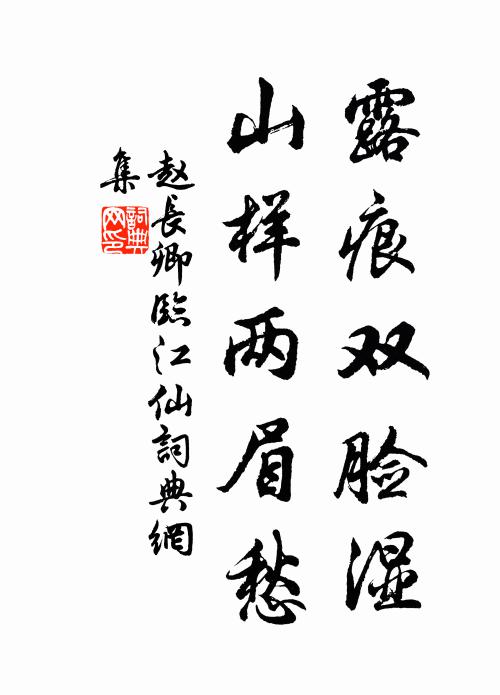 露痕双脸湿
山样两眉愁
赵長卿臨江仙詞典網
集
詞典网印